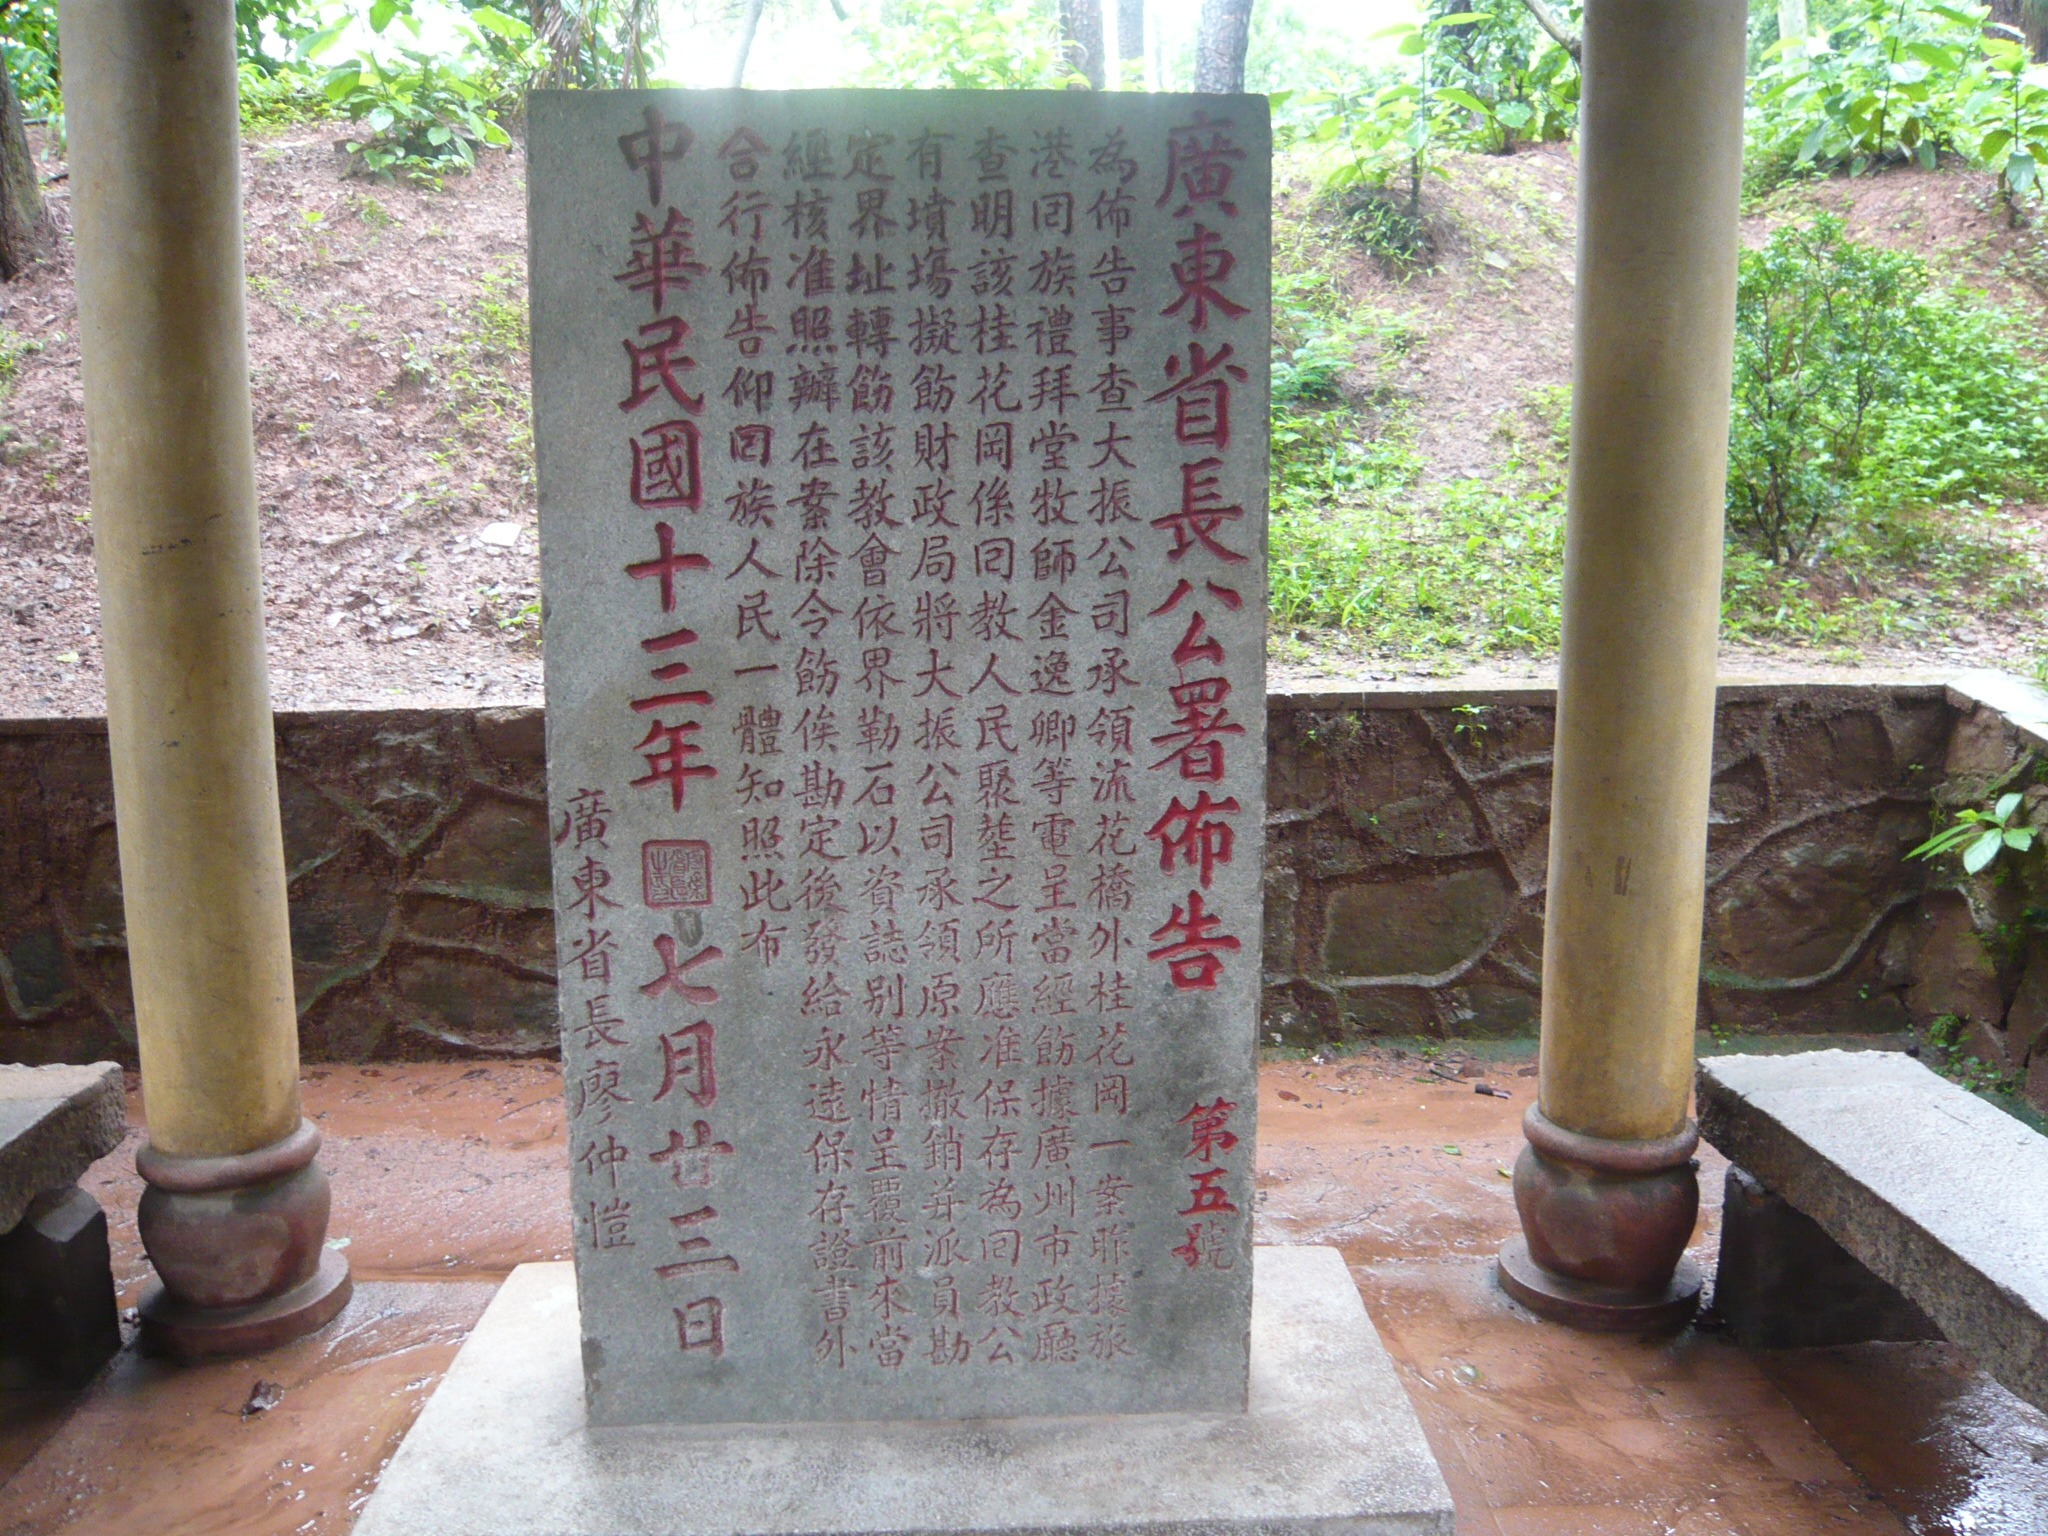 廣東省長公署佈告 第五號
為佈告事查大振公司承領流花橋外桂花岡一案昨據旅
港回族禮拜堂牧師金逸卿等電呈當經飭據廣州市政廳
查明該桂花岡係回教人民聚塟之所應准保存為回教公
有墳塲擬飭財政局將大振公司承領原案撤銷并派員勘
定界址轉飭該教會依界勒石以資誌别等情呈覆前來當
經核准照辦在案除令飭俟勘定後發給永遠保存證書外
合行佈告仰回族人民一體知照此布
中華民國十三年七月廿三日
廣東省長廖仲愷